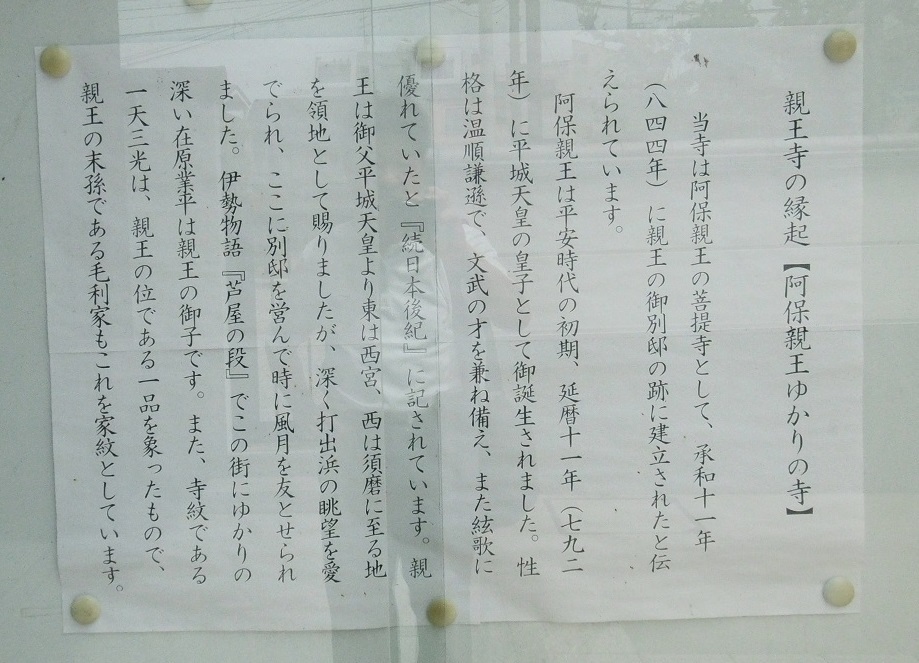 親王寺の縁起【阿保親王ゆかりの寺】
当寺は阿保親王の菩提寺として、承和十一年
（八四四年）に親王の御別邸の跡に建立されたと伝
えられています。
阿保親王は平安時代の初期、延暦十一年（七九二
年）に平城天皇の皇子として御誕生されました。性
格は温順謙遜で、文武の才を兼ね備え、また絃歌に
優れていたと『続日本後紀』に記されています。親
王は御父平城天皇より東は西宮、西は須磨に至る地
を領地として賜りましたが、深く打出浜の眺望を愛
でられ、ここに別邸を営んで時に風月を友とせられ
ました。伊勢物語『芦屋の段』でこの街にゆかりの
深い在原業平は親王の御子です。また、寺紋である
一天三光は、親王の位である一品を象ったもので、
親王の末孫である毛利家もこれを家紋としています。